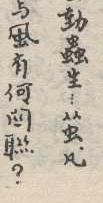 動蟲生
与風有何関聯？